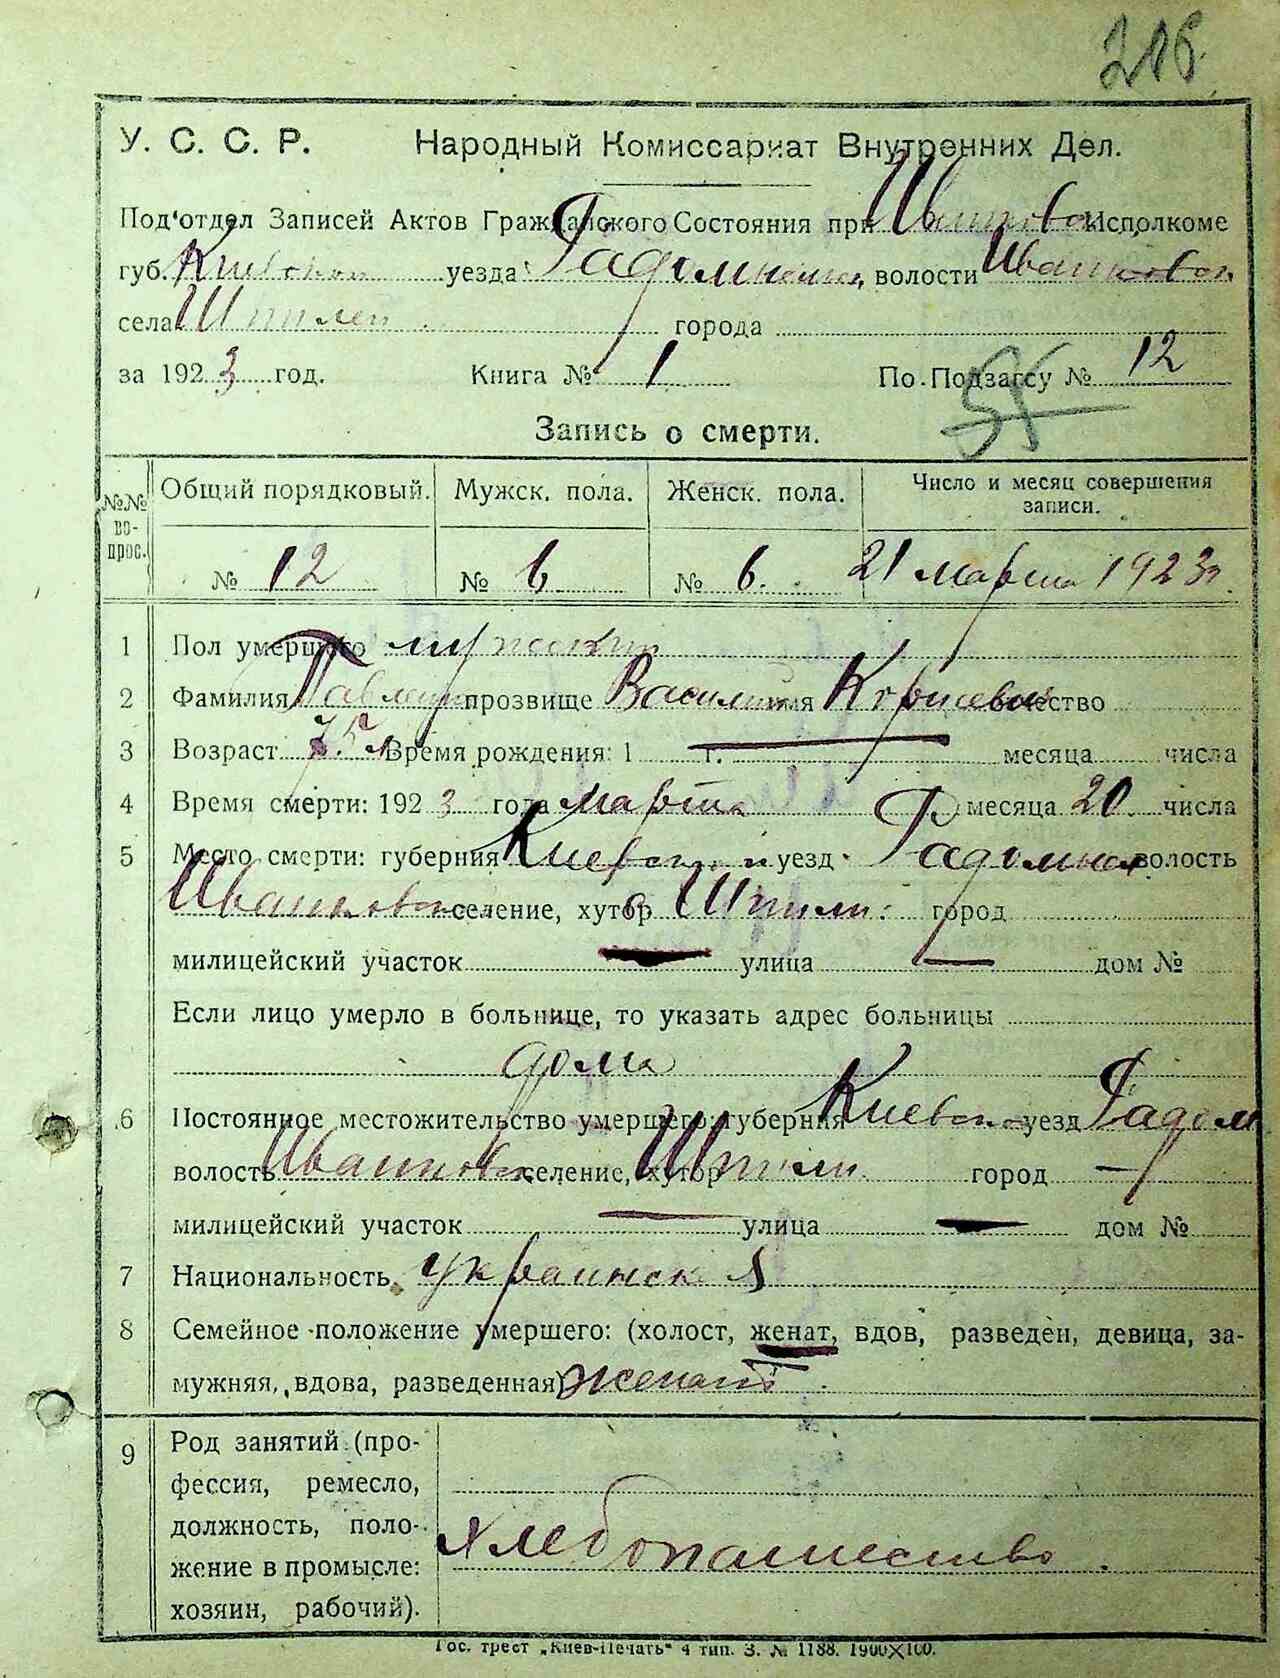 206.
У. С. С. Р. Народный Комиссариат Внутренних Дел.
Под'отдел Записей Актов Гражданского Состояния при Иванков Исполкоме
губ. Киевской уезда Радомысл волости Иванковской
села Шпилей города
за 1923 год. Книга № 1 По Подзагсу № 12
55
Запись о смерти.
№№ во-прос. Общий порядковый. Мужск. пола. Женск. пола. Число и месяц совершения
записи.
№ 12 № 6 № 6. 21 марта 1923 г.
1 Пол умершего мужской
2 Фамилия прозвище Василий имя отчество
3 Возраст 75 л Время рождения: 1 г. месяца числа
4 Время смерти: 1923 года марта месяца 20 числа
5 Место смерти: губерния Киевской уезд Радомысл волость
Иванковской селение, хутор Шпили город
милицейский участок — улица — дом №
Если лицо умерло в больнице, то указать адрес больницы
дома
6 Постоянное местожительство умершего: губерния Киевской уезд Радом
волость Иванковск селение, хутор Шпили город —
милицейский участок — улица — дом №
7 Национальность украинск
8 Семейное положение умершего: (холост, женат, вдов, разведен, девица, за-
мужняя, вдова, разведенная) женат
9 Род занятий (про-
фессия, ремесло,
должность, поло-
жение в промысле:
хозяин, рабочий).
хлебопашество
Гос. трест „Киев-Печать" 4 тип. З. № 1188. 1900X100.